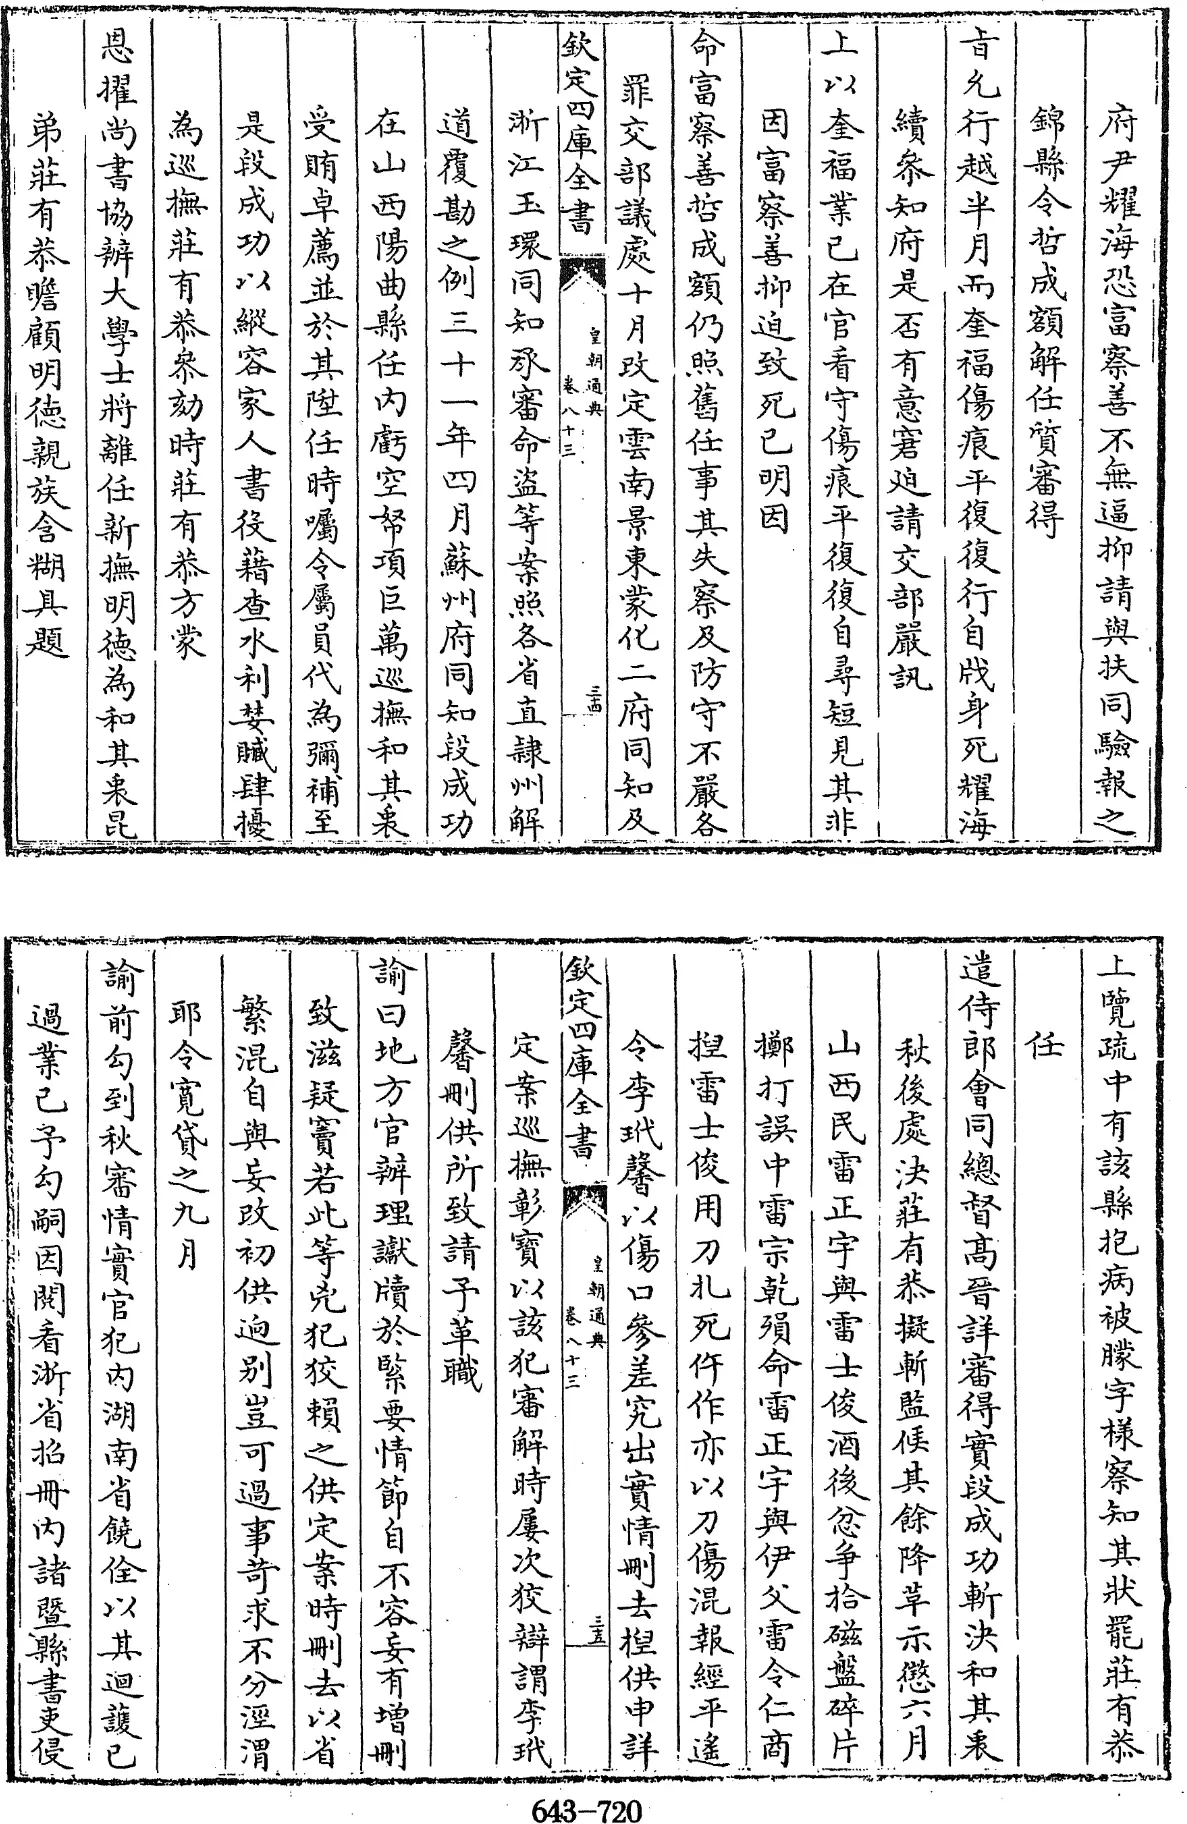 府尹耀海恐富察善不無逼抑請與扶同驗報之
錦縣令哲成額解任質審得
旨允行越半月而奎福傷痕平復復行自戕身死耀海
續叅知府是否有意窘迫請交部嚴訊
上以奎福業已在官看守傷痕平復復自尋短見其非
因富察善抑迫致死已明因
命富察善哲成額仍照舊任事其失察及防守不嚴各
罪交部議處十月改定雲南景東蒙化二府同知及
欽定四庫全書
皇朝通典
卷八十三
三十四
浙江玉環同知承審命盜等案照各省直隸州解
道覆勘之例三十一年四月蘇州府同知段成功
在山西陽曲縣任内虧空帑項巨萬巡撫和其衷
受賄卓薦並於其陞任時囑令屬員代為彌補至
是段成功以縱容家人書役藉查水利婪贓肆擾
為巡撫莊有恭叅劾時莊有恭方蒙
恩擢尚書協辦大學士將離任新撫明德為和其衷昆
弟莊有恭瞻顧明德親族含糊具題
上覽疏中有該縣抱病被朦字様察知其狀罷莊有恭
任
遣侍郎會同總督髙晉詳審得實段成功斬決和其衷
秋後處決莊有恭擬斬監候其餘降革示懲六月
山西民雷正宇與雷士俊酒後忿争拾磁盤碎片
擲打誤中雷宗乾殞命雷正宇與伊父雷令仁商
揑雷士俊用刀扎死仵作亦以刀傷混報經平遙
令李玳馨以傷口參差究出實情刪去揑供申詳
欽定四庫全書
皇朝通典
卷八十三
三十五
定案巡撫彰寶以該犯審解時屢次狡辯謂李玳
馨刪供所致請予革職
諭曰地方官辦理讞牘於緊要情節自不容妄有增刪
致滋疑竇若此等兇犯狡賴之供定案時刪去以省
繁混自與妄改初供迥别豈可過事苛求不分涇渭
耶令寛貸之九月
諭前勾到秋審情實官犯内湖南省饒佺以其迴護已
過業已予勾嗣因閱看浙省招冊内諸暨縣書吏侵
643-720